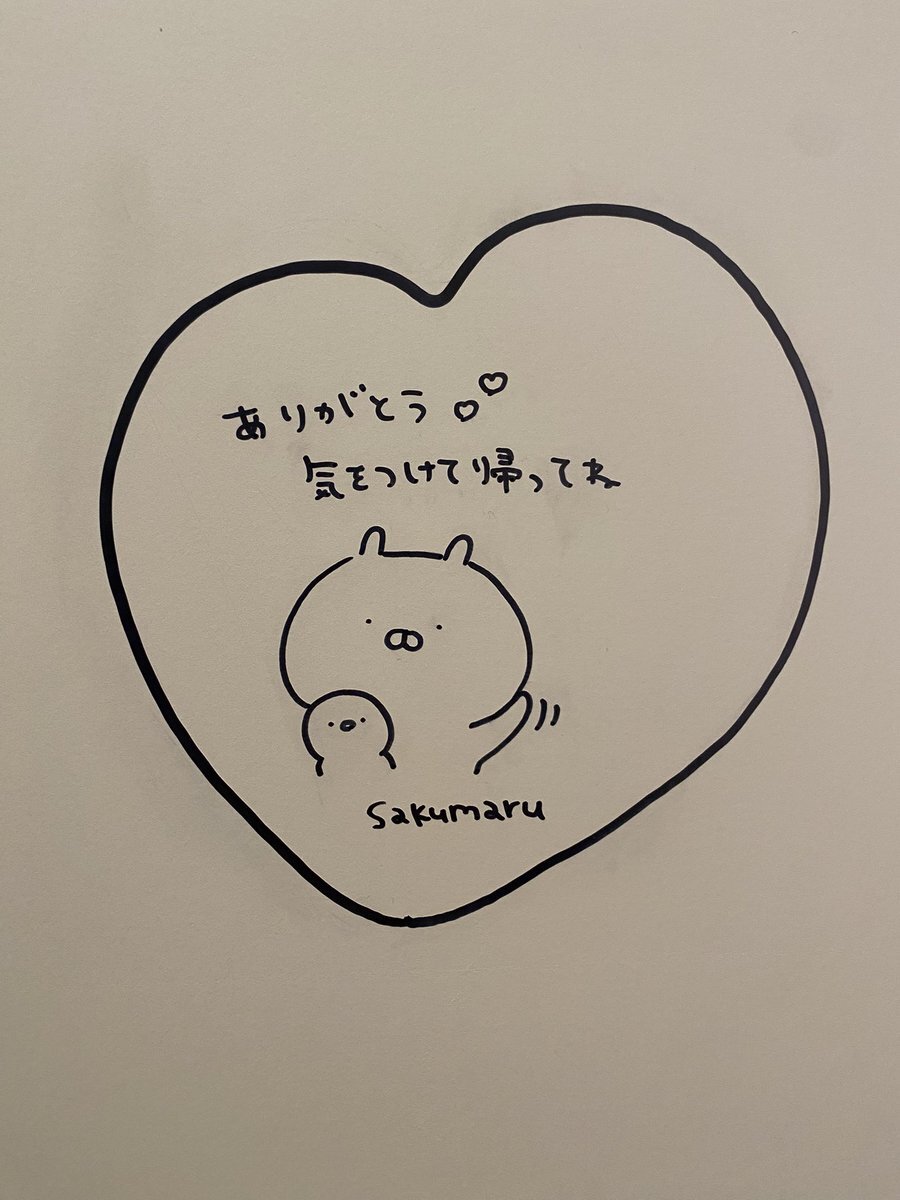 ありがとう♡♡
気をつけて帰ってね
sakumaru